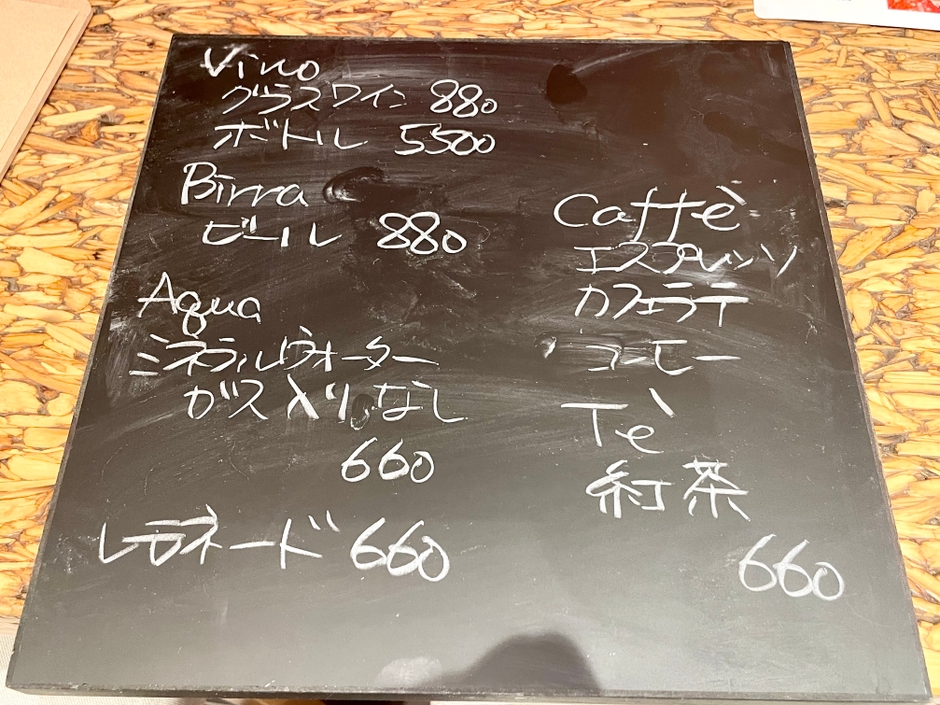 Vino
グラスワイン 880
ボトル 5500
Birra
ビール 880
Aqua
ミネラルウォーター
ガス入り.なし
660
レモネード 660
Caffè
エスプレッソ
カフェラテ
コーヒー
Tè
紅茶
660